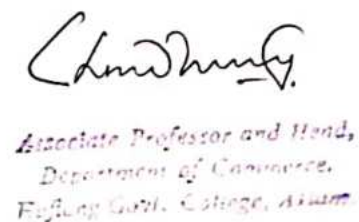 Choudhury.
Associate Professor and Head,
Department of Commerce.
Haflong Govt. College, Assam.